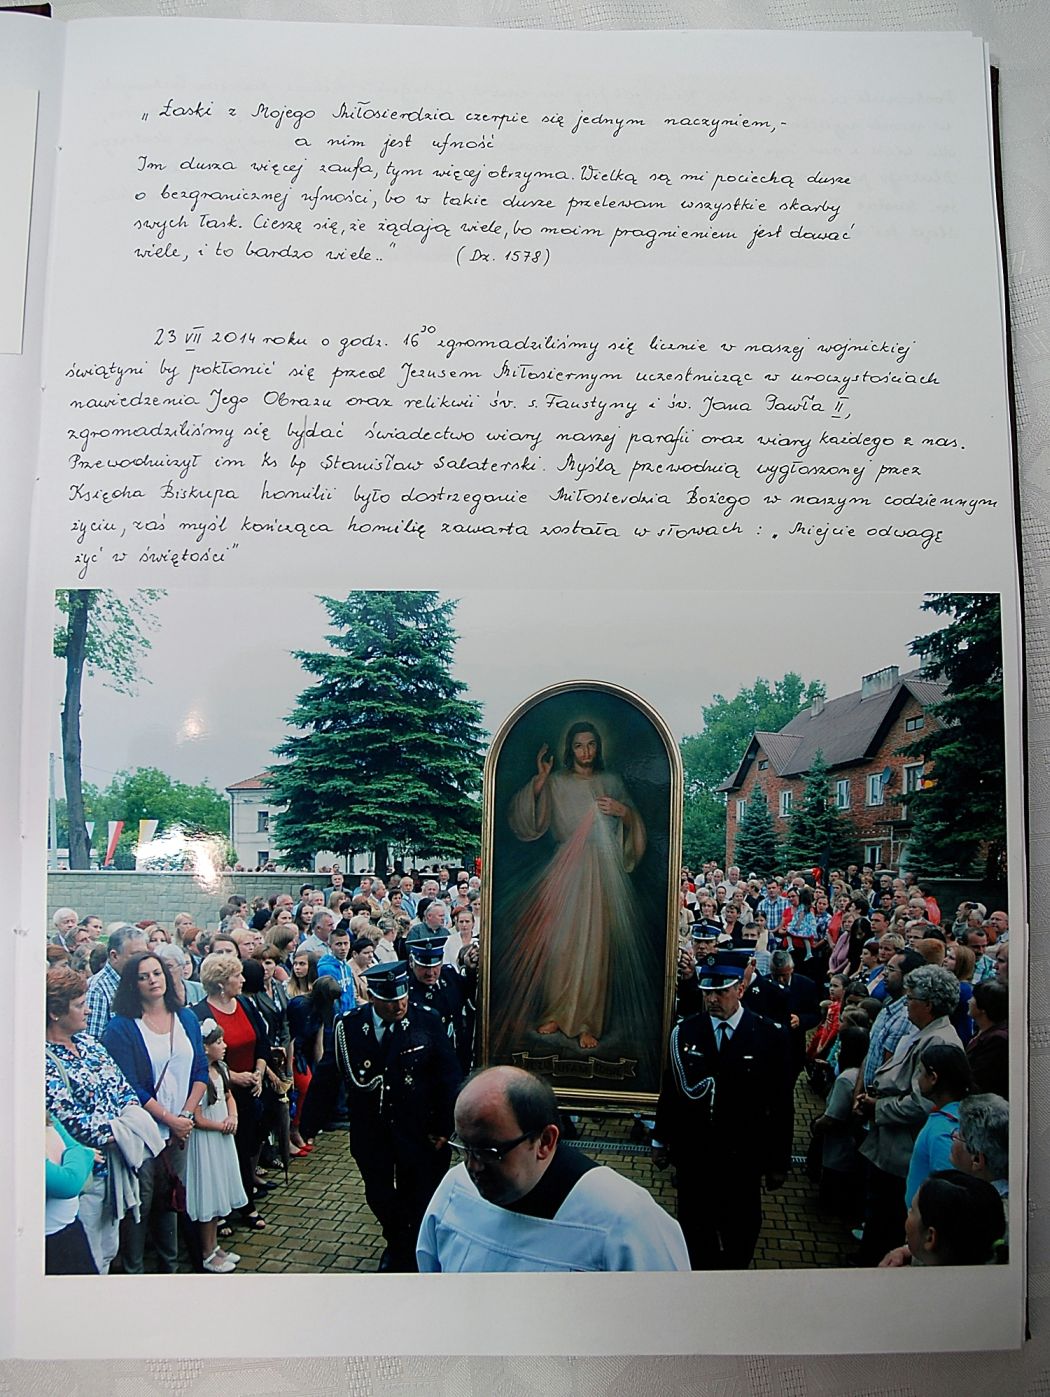 „ Łaski z Mojego Miłosierdzia czerpie się jednym naczyniem,-
a nim jest ufność
Im dusza więcej zaufa, tym więcej otrzyma. Wielką są mi pociechą dusze
o bezgranicznej ufności, bo w takie dusze przelewam wszystkie skarby
swych łask. Cieszę się, że żądają wiele, bo moim pragnieniem jest dawać
wiele, i to bardzo wiele.." (Dz. 1578)
23 VII 2014 roku o godz. 16³⁰ zgromadziliśmy się licznie w naszej wojnickiej
świątyni by pokłonić się przed Jezusem Miłosiernym uczestnicząc w uroczystościach
nawiedzenia Jego Obrazu oraz relikwii św. s. Faustyny i św. Jana Pawła II,
zgromadziliśmy się by dać świadectwo wiary naszej parafii oraz wiary każdego z nas.
Przewodniczył im Ks bp Stanisław Salaterski. Myślą przewodnią wygłoszonej przez
Księdza Biskupa homilii było dostrzeganie Miłosierdzia Bożego w naszym codziennym
życiu, zaś myśl kończąca homilię zawarta została w słowach : „ Miejcie odwagę
żyć w świętości"
JEZU UFAM TOBIE